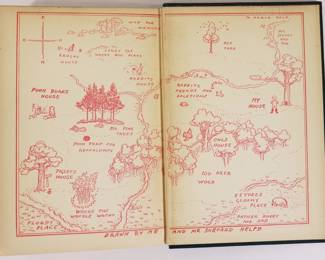 POOH BEARS
HOUSE
KANGAS
HOUSE
RABBITS
HOUSE
SIX PINE
TREES
POOH TRAP FOR
HEFFALUMPS
PIGLETS
HOUSE
WHERE THE
WOOZLE WASNT
FLOODY
PLACE
DRAWN BY ME
TO NORTH POLE
BEE
TREE
RABBITS
FRIENDS AND
RELATIONS
MY
HOUSE
OWLS
HOUSE
100 AKER
WOOD
EEYORES
GLOOMY
PLACE
RATHER BOGGY
AND SAD
AND MR SHEPARD HELPD